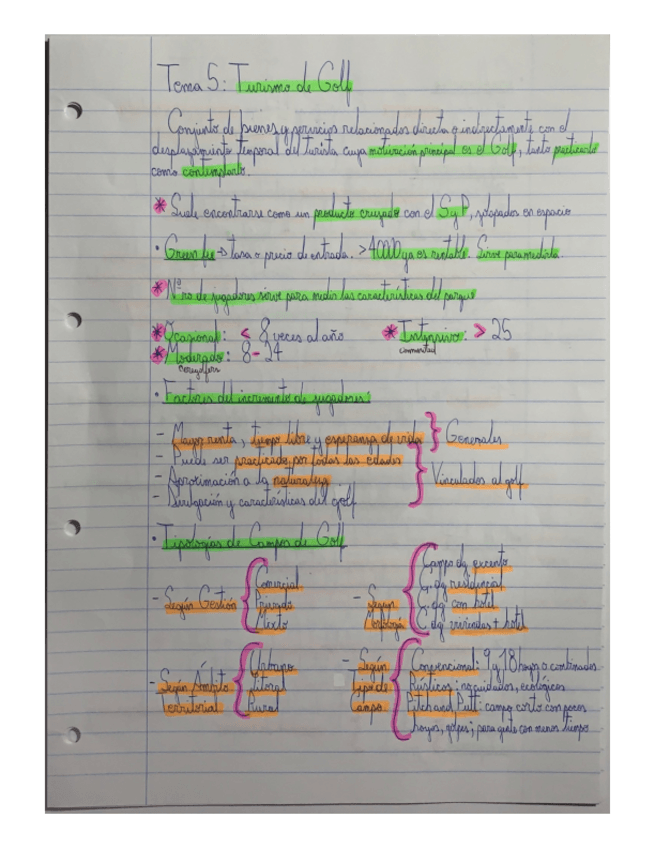 Tema 5: Turismo de Golf
Conjunto de bienes y servicios relacionados directa o indirectamente con el
desplazamiento temporal del turista cuya motivación principal es el Golf, tanto practicarlo
como contemplarlo.
* Suele encontrarse como un producto cruzado con el SyP, solapados en espacio
· Green fee → tasa o precio de entrada. >40000 ya es rentable. Sirve para medirla.
* Nº ro de jugadores sirve para medir las características del parque
* Ocasional: < 8 veces al año * Intensivo: > 25
* Moderado: 8 - 24
· Factores del incremento de jugadores:
- Mayor renta, tiempo libre y esperanza de vida } Generales
- Puede ser practicado por todas las edades
- Aproximación a la naturaleza } Vinculados al golf
- Divulgación y características del golf
· Tipologías de Campos de Golf
- Según Gestión { Comercial
Privado
Mixto
- Según Morfología { Campo dg excento
C. dg residencial
C. dg con hotel
C. dg viviendas + hotel
- Según Ámbito Territorial { Urbano
Litoral
Rural
- Según tipo de Campo { Convencional: 9 y 18 hoyos o combinados
Rústicos: no cuidados, ecológicos
Pitch and Putt: campo corto con pocos
hoyos, golpes; para gente con menos tiempo